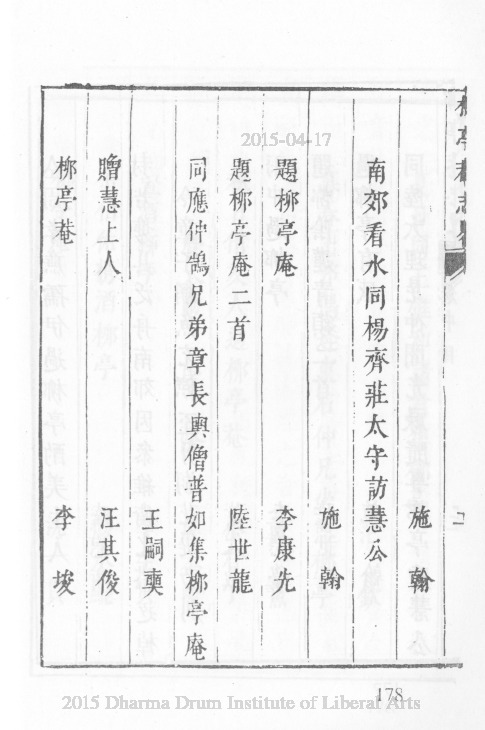 柳亭菴志
施翰
南郊看水同楊齊莊太守訪慧公
施翰
題柳亭庵 李康先
題柳亭庵二首 陸世龍
同應仲鵠兄弟章長輿僧普如集柳亭庵
王嗣奭
贈慧上人 汪其俊
柳亭菴 李埈
2015-04-17
178
2015 Dharma Drum Institute of Liberal Arts